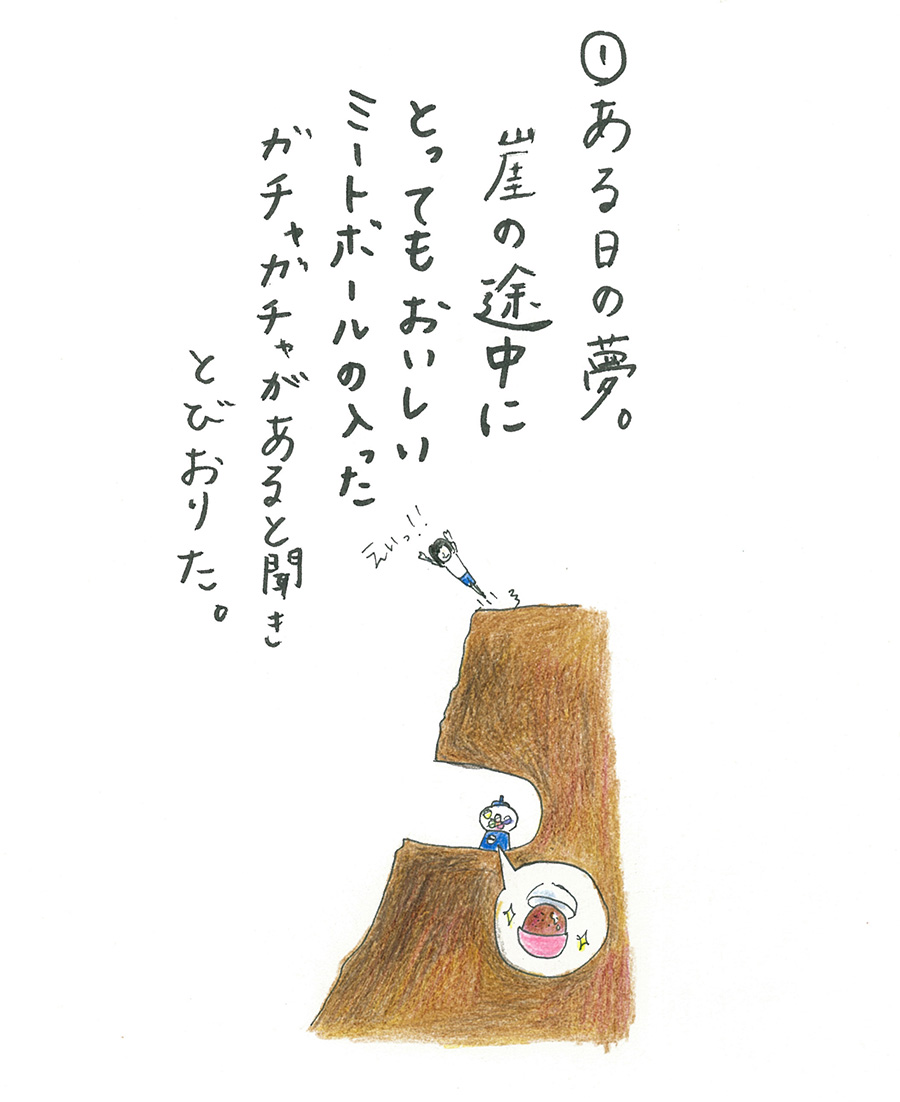 ①ある日の夢。
崖の途中に
とってもおいしい
ミートボールの入った
ガチャガチャがあると聞き
とびおりた。
えいっ!!